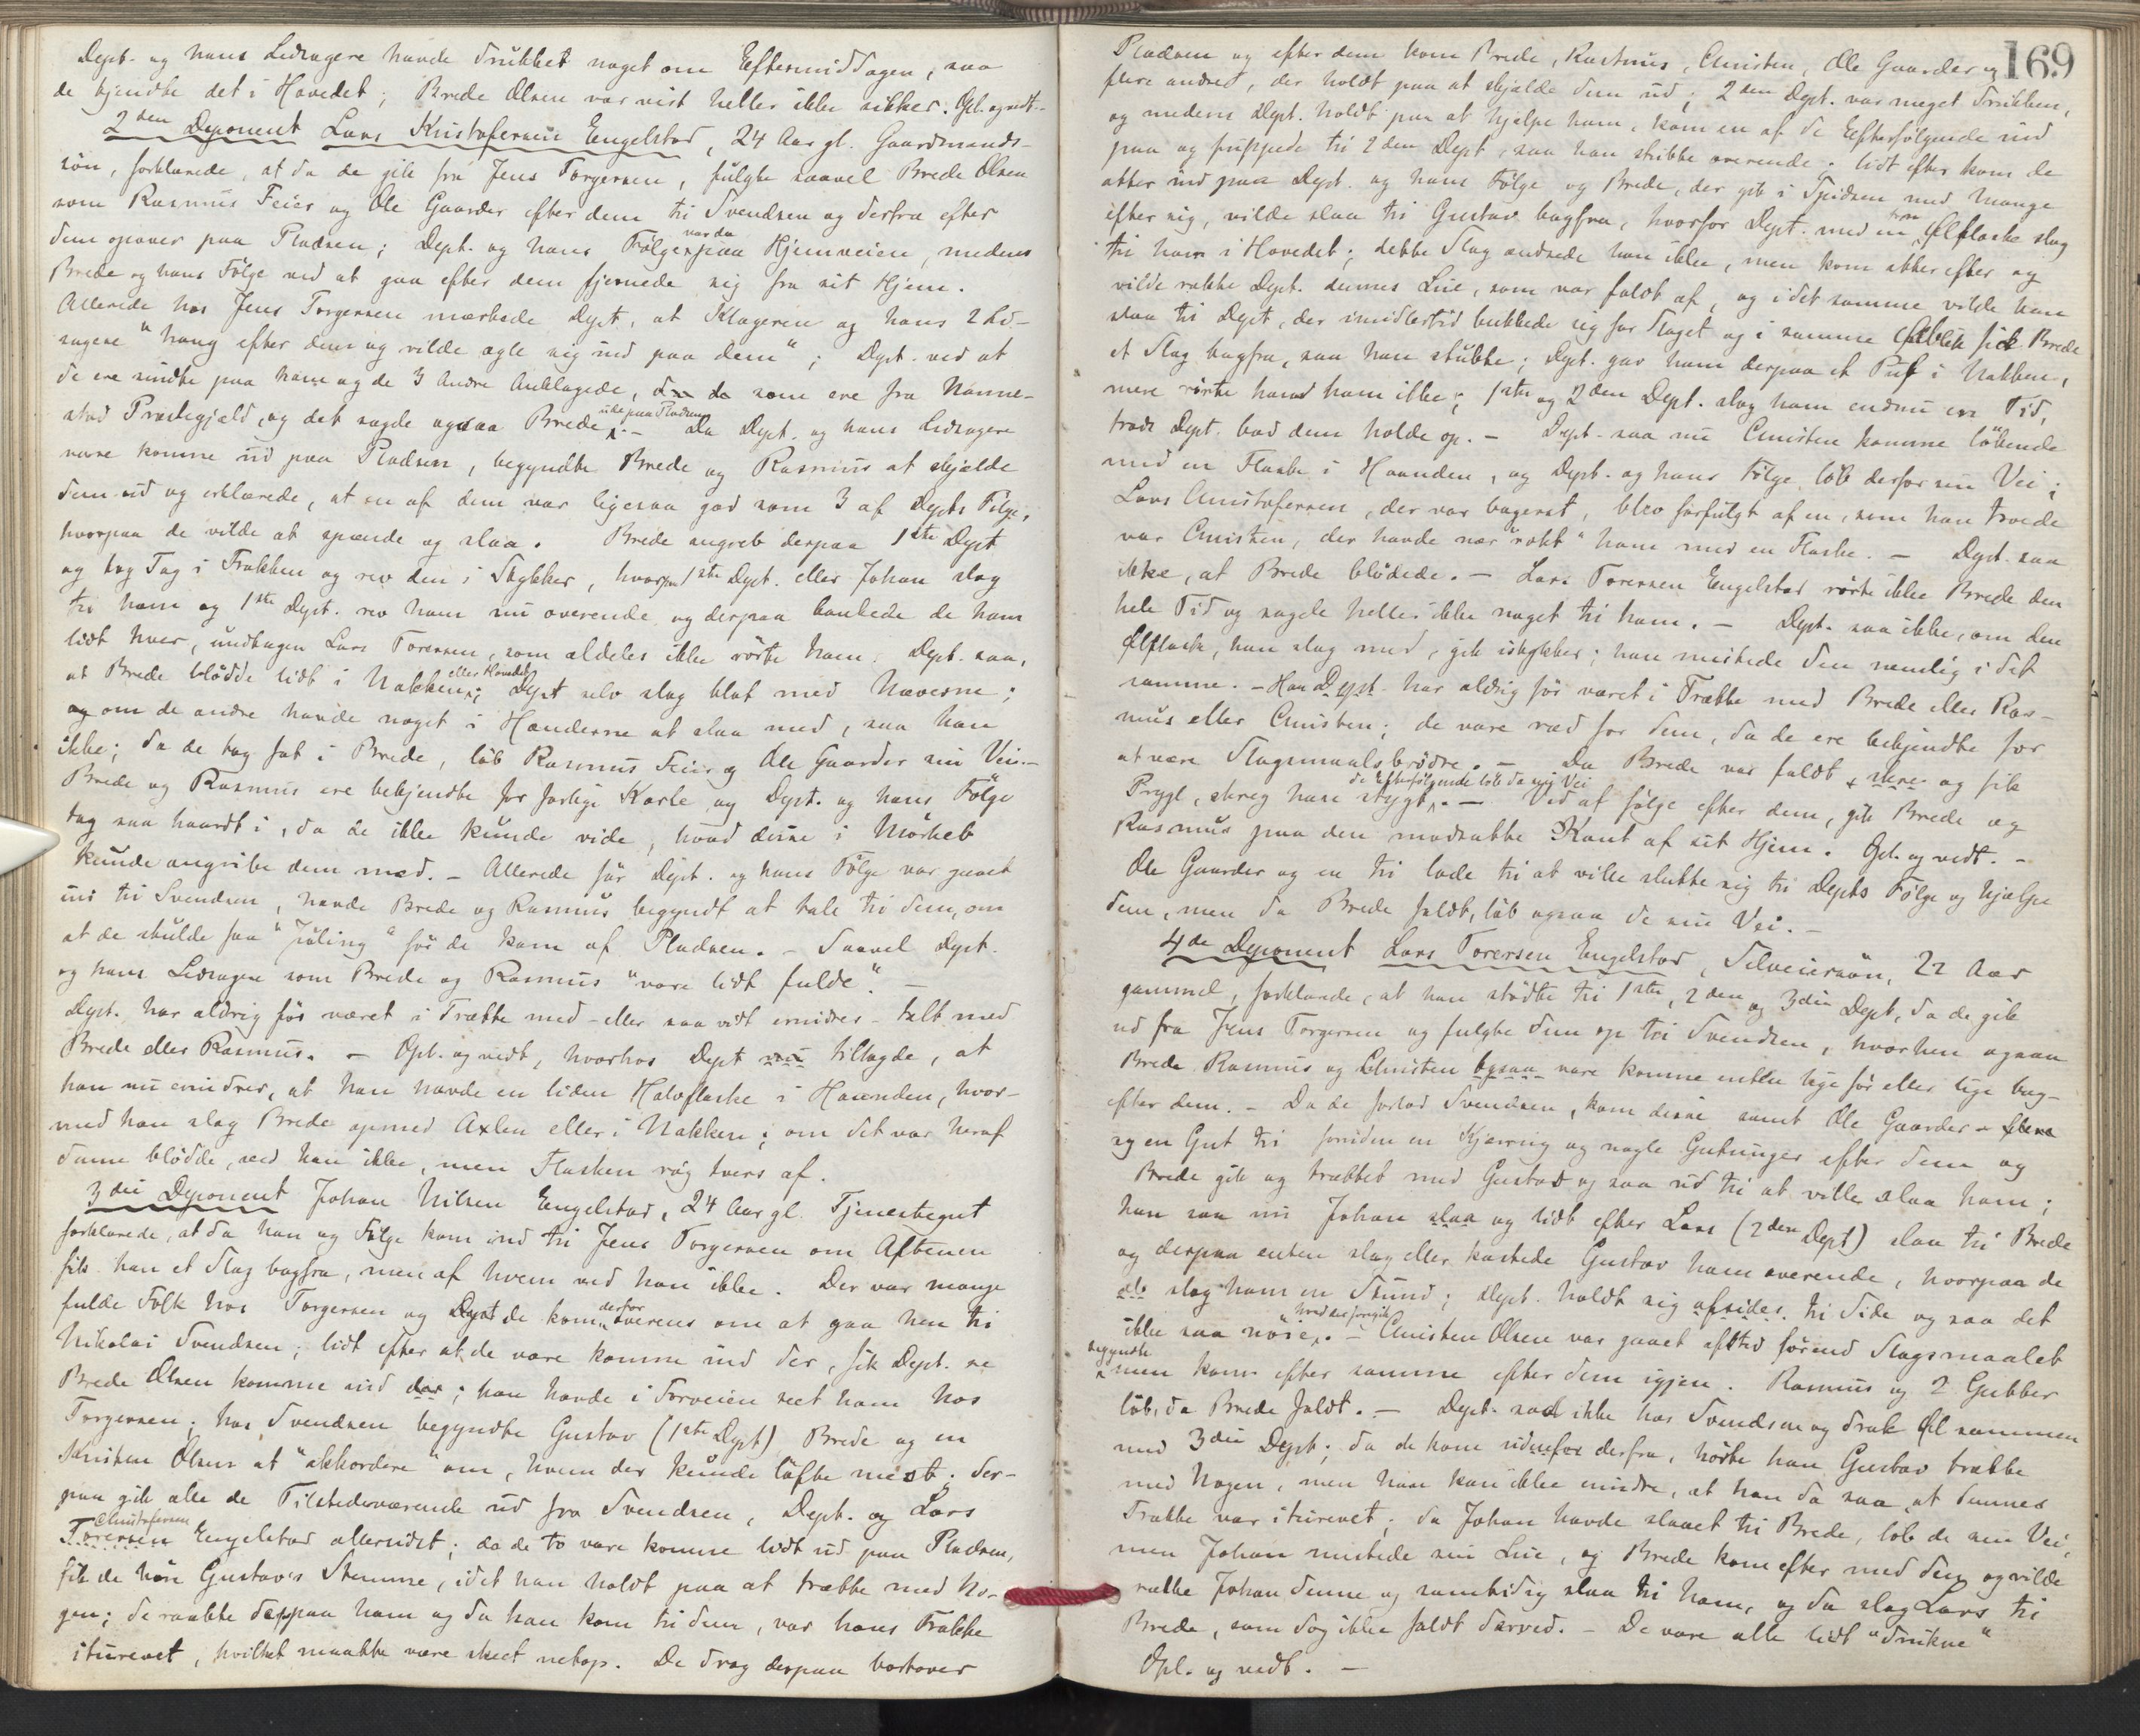 Dept. og hans Ledsagere havde drukket noget om Eftermiddagen, saa
de kjendte det i Hovedet; Brede Olsen var vist heller ikke sikker. Opl. og vedt.
2den Deponent Lars Kristofersen Engelstad, 24 Aar gl. Gaardmands-
søn, forklarede, at da de gik fra Jens Torgersen, fulgte saavel Brede Olsen
som Rasmus Feier og Ole Gaarder efter dem til Svendsen og derfra efter
dem opover paa Pladsen; Dept. og hans Følge var da paa Hjemveien, medens
Brede og hans Følge ved at gaa efter dem fjernede sig fra sit Hjem.
Allerede hos Jens Torgersen mærkede Dept., at Klageren og hans 2 Led-
sagere "hang efter dem og vilde egle sig ind paa dem"; Dept. ved at
de ere sindte paa ham og de 3 Andre Anklagede, da de som ere fra Nanne-
stad Præstegjeld, og det sagde ogsaa Brede ude paa Pladsen. - Da Dept. og hans Ledsagere
vare komne ud paa Pladsen, begyndte Brede og Rasmus at skjælde
dem ud og erklærede, at en af dem var ligesaa god som 3 af Depts Følge,
hvorpaa de vilde at spænde og slaa. Brede angreb derpaa 1ste Dept
og tog Tag i Frakken og rev den i Stykker, hvorpaa 1ste Dept. eller Johan slog
til ham og 1ste Dept. rev ham nu overende og derpaa bankede de ham
lidt hver, undtagen Lars Toresen, som aldeles ikke rørte ham. Dept. saa,
at Brede blødde lidt i Nakken eller Hovedet; Dept selv slog blot med Næverne;
og om de andre havde noget i Hænderne at slaa med, saa han
ikke; da de tog fat i Brede, løb Rasmus Feier og Ole Gaarder sin Vei. -
Brede og Rasmus ere bekjendte for farlige Karle og Dept. og hans Følge
tog saa haardt i, da de ikke kunde vide, hvad disse i Mørket
kunde angribe dem med. - Allerede før Dept. og hans Følge var gaaet
ind til Svendsen, havde Brede og Rasmus begyndt at tale til dem, om
at de skulde faa "Juling" før de kom af Pladsen. - Saavel Dept.
og hans Ledsagere som Brede og Rasmus "vare lidt fulde". -
Dept. har aldrig før været i Trætte med - eller saa vidt erindres - talt med
Brede eller Rasmus. - Opl. og vedt, hvorhos Dept nu tillagde, at
han nu erindrer, at han havde en liden Halvflaske i Haanden, hvor-
med han slog Brede opmed Axlen eller i Nakken; om det var heraf
denne blødde, ved han ikke, men Flasken røg tvers af.
3die Deponent Johan Nilsen Engelstad, 24 Aar gl. Tjenestegut
forklarede, at da han og Følge kom ind til Jens Torgersen om Aftenen
fik han et Slag bagfra, men af hvem ved han ikke. Der var mange
fulde Folk hos Torgersen og Dept de kom derfor overens om at gaa hen til
Nikolai Svendsen; lidt efter at de vare komne ind der, fik Dept. se
Brede Olsen komme ind der; han havde i Forveien seet ham hos
Torgersen; hos Svendsen begyndte Gustav (1ste Dept) Brede og en
Kristen Olsen at "akkordere" om, hvem der kunde løfte mest; der-
paa gik alle de Tilstedeværende ud fra Svendsen, Dept. og Lars
Toresen Christofersen Engelstad allersidst; da de to vare komne lidt ud paa Pladsen,
fik de høre Gustav's Stemme, idet han holdt paa at trætte med No-
gen; de raabte derpaa ham og da han kom til dem, var hans Frakke
iturevet, hvilket maatte være skeet netop. De drog derpaa bortover
169
Pladsen og efter dem kom Brede, Rasmus, Christen, Ole Gaarder og
flere andre, der holdt paa at skjælde dem ud; 2den Dept. var meget drukken,
og medens Dept. holdt paa at hjelpe ham, kom en af de Efterfølgende ind
paa og puffede til 2den Dept, saa han stubte overende. Lidt efter kom de
atter ind paa Dept. og hans Følge og Brede, der gik i Spidsen med Mange
efter sig, vilde slaa til Gustav bagfra, hvorfor Dept. med en tom Ølflaske slog
til ham i Hovedet; dette Slag ændsede han ikke, men kom atter efter og
vilde række Dept. dennes Lue, som var faldt af, og i det samme vilde han
slaa til Dept, der imidlertid bukkede sig for Slaget og i samme Øieblik fik Brede
et Slag bagfra, saa han stubte; Dept. gav ham derpaa et Puf i Nakken,
mere rørte han ham ikke; 1ste og 2den Dept. slog ham endnu en Tid,
trods Dept. bad dem holde op. - Dept. saa nu Christen komme løbende
med en Flaske i Haanden, og Dept. og hans Følge løb derfor sin Vei;
Lars Christofersen, der var bagerst, blev forfulgt af en, som han troede
var Christen, der havde nær "rokt" ham med en Flaske. - Dept. saa
ikke, at Brede blødede. - Lars Toresen Engelstad rørte ikke Brede den
hele Tid og sagde heller ikke noget til ham. - Dept. saa ikke, om den
Ølflaske, han slog med, gik istykker; han mistede den nemlig i det
samme. - Han Dept. har aldrig før været i Trætte med Brede eller Ras-
mus eller Christen; de vare ræd for dem, da de ere bekjendte for
at være Slagsmaalsbrødre. - Da Brede var faldt og fik
Prygl, skreg han stygt, de Efterfølgende løb da sin Vei. - Ved at følge efter dem, gik Brede og
Rasmus paa den modsatte Kant af sit Hjem. Opl. og vedt. -
Ole Gaarder og en til lode til at ville slutte sig til Depts Følge og hjælpe
dem, men da Brede faldt, løb ogsaa de sin Vei. -
4de Deponent Lars Toresen Engelstad, Selveiersøn, 22 Aar
gammel, forklarede, at han stødte til 1ste, 2den og 3die Dept, da de gik
ud fra Jens Torgersen og fulgte dem op til Svendsen, hvorhen ogsaa
Brede Rasmus og Christen ogsaa vare komne enten lige før eller lige bag-
efter dem. - Da de forlod Svendsen, kom disse samt Ole Gaarder
og en Gut til foruden en Kjærring og nogle Gutunger efter dem og
Brede gik og trættet med Gustav og saa ud til at ville slaa ham;
han saa nu Johan slaa og lidt efter Lars (2den Dept) slaa til Brede
og derpaa enten slog eller kastede Gustav ham overende, hvorpaa de
slog ham en Stund; Dept. holdt sig afsides til Side og saa det
ikke saa nøie, hvad der foregik. - Christen Olsen var gaaet afsted førend Slagsmaalet
begyndte men kom efter samme efter dem igjen. Rasmus og 2 Gubber
løb, da Brede faldt. - Dept. sad ikke hos Svendsen og drak Øl sammen
med 3die Dept; da de kom udenfor derfra, hørte han Gustav trætte
med Nogen, men han kan ikke erindre, at han da saa, at dennes
Frakke var iturevet; da Johan havde slaaet til Brede, løb de sin Vei,
men Johan mistede sin Lue, og Brede kom efter med den og vilde
række Johan denne og samtidig slaa til ham, og da slog Lars til
Brede, som dog ikke faldt derved. - De vare alle lidt "drukne"
Opl. og vedt. -